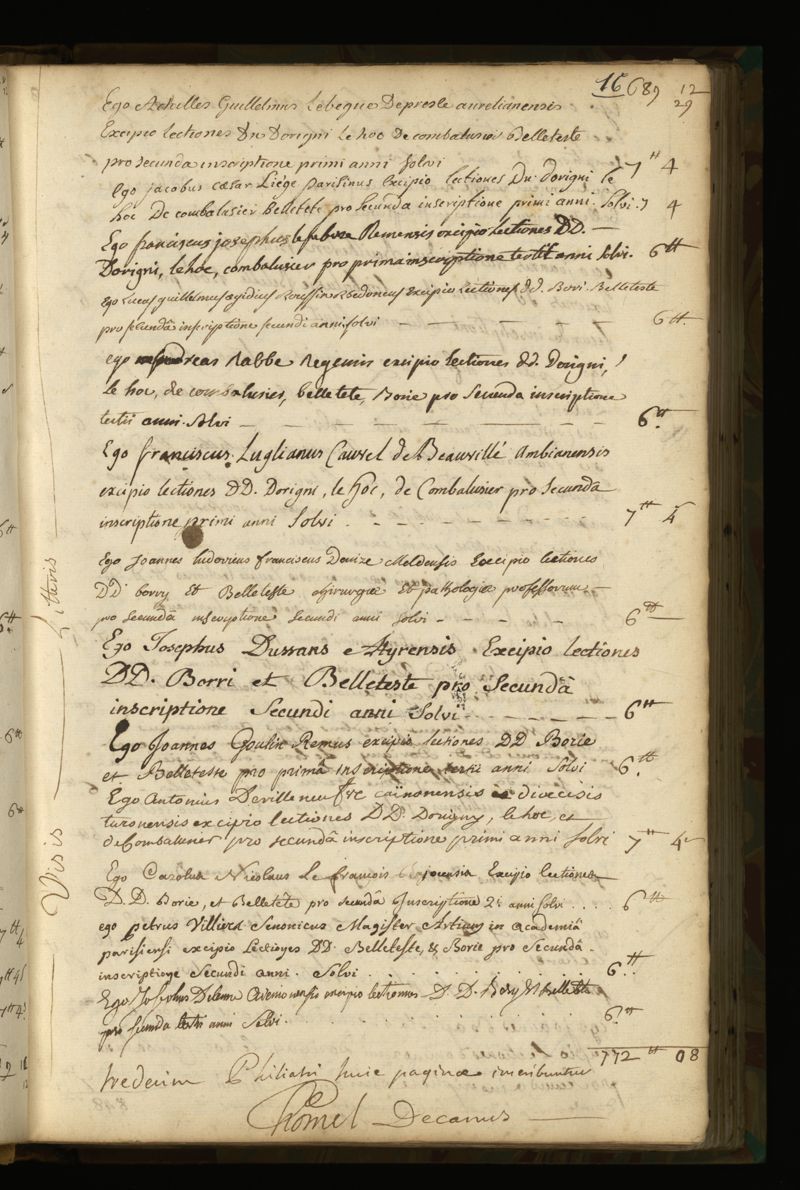 16 689 12
29
Ego Achilles Guillelmus Lebegue Depresle aurelianensis
Excipio lectiones DD Dorigni le hoc De combalusier Belleteste
pro secunda inscriptione primi anni solvi 7tt 4
Ego jacobus cæsar Liége parisinus Excipio lectiones DD. dorigni le
hoc De combalusier Belletete pro secunda inscriptione primi anni. Solvi. 7 4
Ego franciscus josephus lefebvre Remensis excipio Lectiones DD. —
Dorigni, lehoc, combalusier pro prima inscriptione tertii anni solvi. 6tt
Ego Lucas guillelmus ægidius Rhedoneus Excipio Lectiones dd. Bori. Belleteste
pro secundâ inscriptione secundi anni solvi — — — — 6tt.
ego andreas Rabbe Regensis excipio lectiones dd. Dorigni,
le hoc, de combalusier, belletete, Borie pro secunda inscriptione
tertii anni. solvi — — — — — — — 6tt
Ego franciscus Luglianus Cauvel de Beauvillé Ambianensis
excipio lectiones DD. Dorigni, le hoc, de Combalusier pro secunda
inscriptione primi anni solvi . - - - - - - 7tt 4
Ego Joannes ludovicus franciscus Denize Meldensis Excipio lectiones
DD borry Et Belleteste chirurgiæ Et pathologiæ professorum —
pro secundâ inscriptione secundi anni solvi - - - - 6tt
Ego Josephus Dussans Excipio lectiones
DD. Borri et Belleteste pro secundâ
inscriptione secundi anni solvi - - - - - 6tt
Ego Joannes Goulin Remus excipio lectiones DD Borie
et Belleteste pro primâ inscriptione tertii anni solvi 6tt
Ego Antonius Devilleneufve caïnonensis diœcesis
turonensis excipio lectiones DD. Dorigny, lehoc, et
deCombalusier pro secundâ inscriptione primi anni solvi 7tt 4
Ego Carolus Nicolaus Le francois Excipio lectiones
D.D. Borie, et Belletête pro secundâ Inscriptione 2i anni solvi . . . . 6tt
ego petrus Villiers Senonicus Magister Artium in academiâ
parisiensi excipio Lectiones DD. Belleteste, & Borie pro secundâ -
inscriptione secundi anni . Solvi . . . . . . . . . 6tt
Ego Josephus Avenionensis excipio lectiones D.D. Bory & Belletete
pro secunda tertii anni solvi . . . . . . . . 6.tt
772tt 08
tredecim Philiatri huic paginæ inscribuntur
Chomel Decanus —
Visis — Litteris —